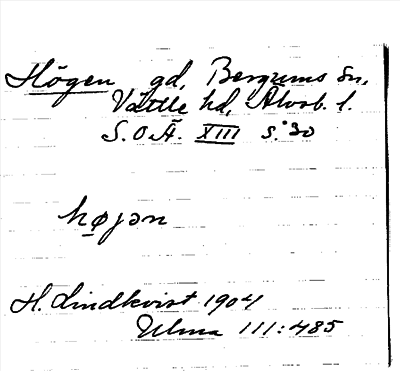 Högen gd, Bergums sn,
Vättle hd, Älvsb. l.
S.O.Ä. XIII s. 30
højən
H. Lindkvist 1904
Ulma 111:485